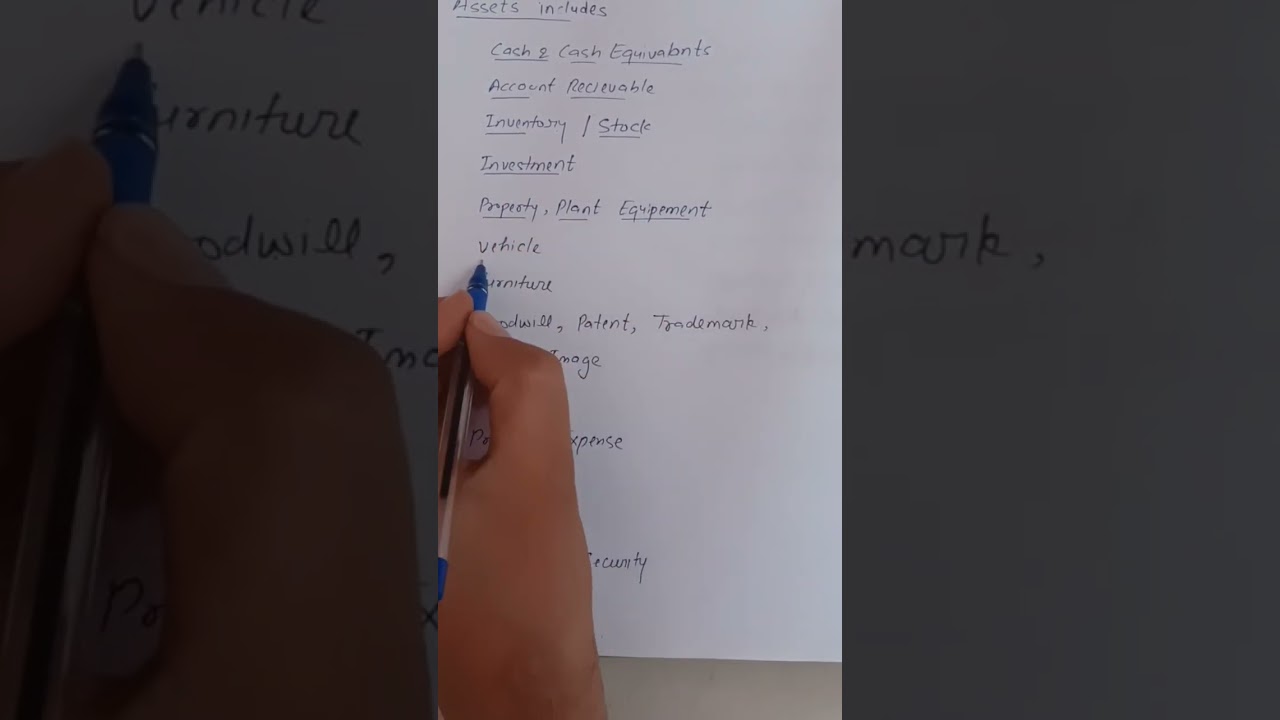 Assets includes
Cash & Cash Equivabnts
Account Recievable
Inventory / Stock
Investment
Property, Plant Equipement
Vehicle
urniture
odwill, Patent, Trademark,
Image
xpense
ecurity